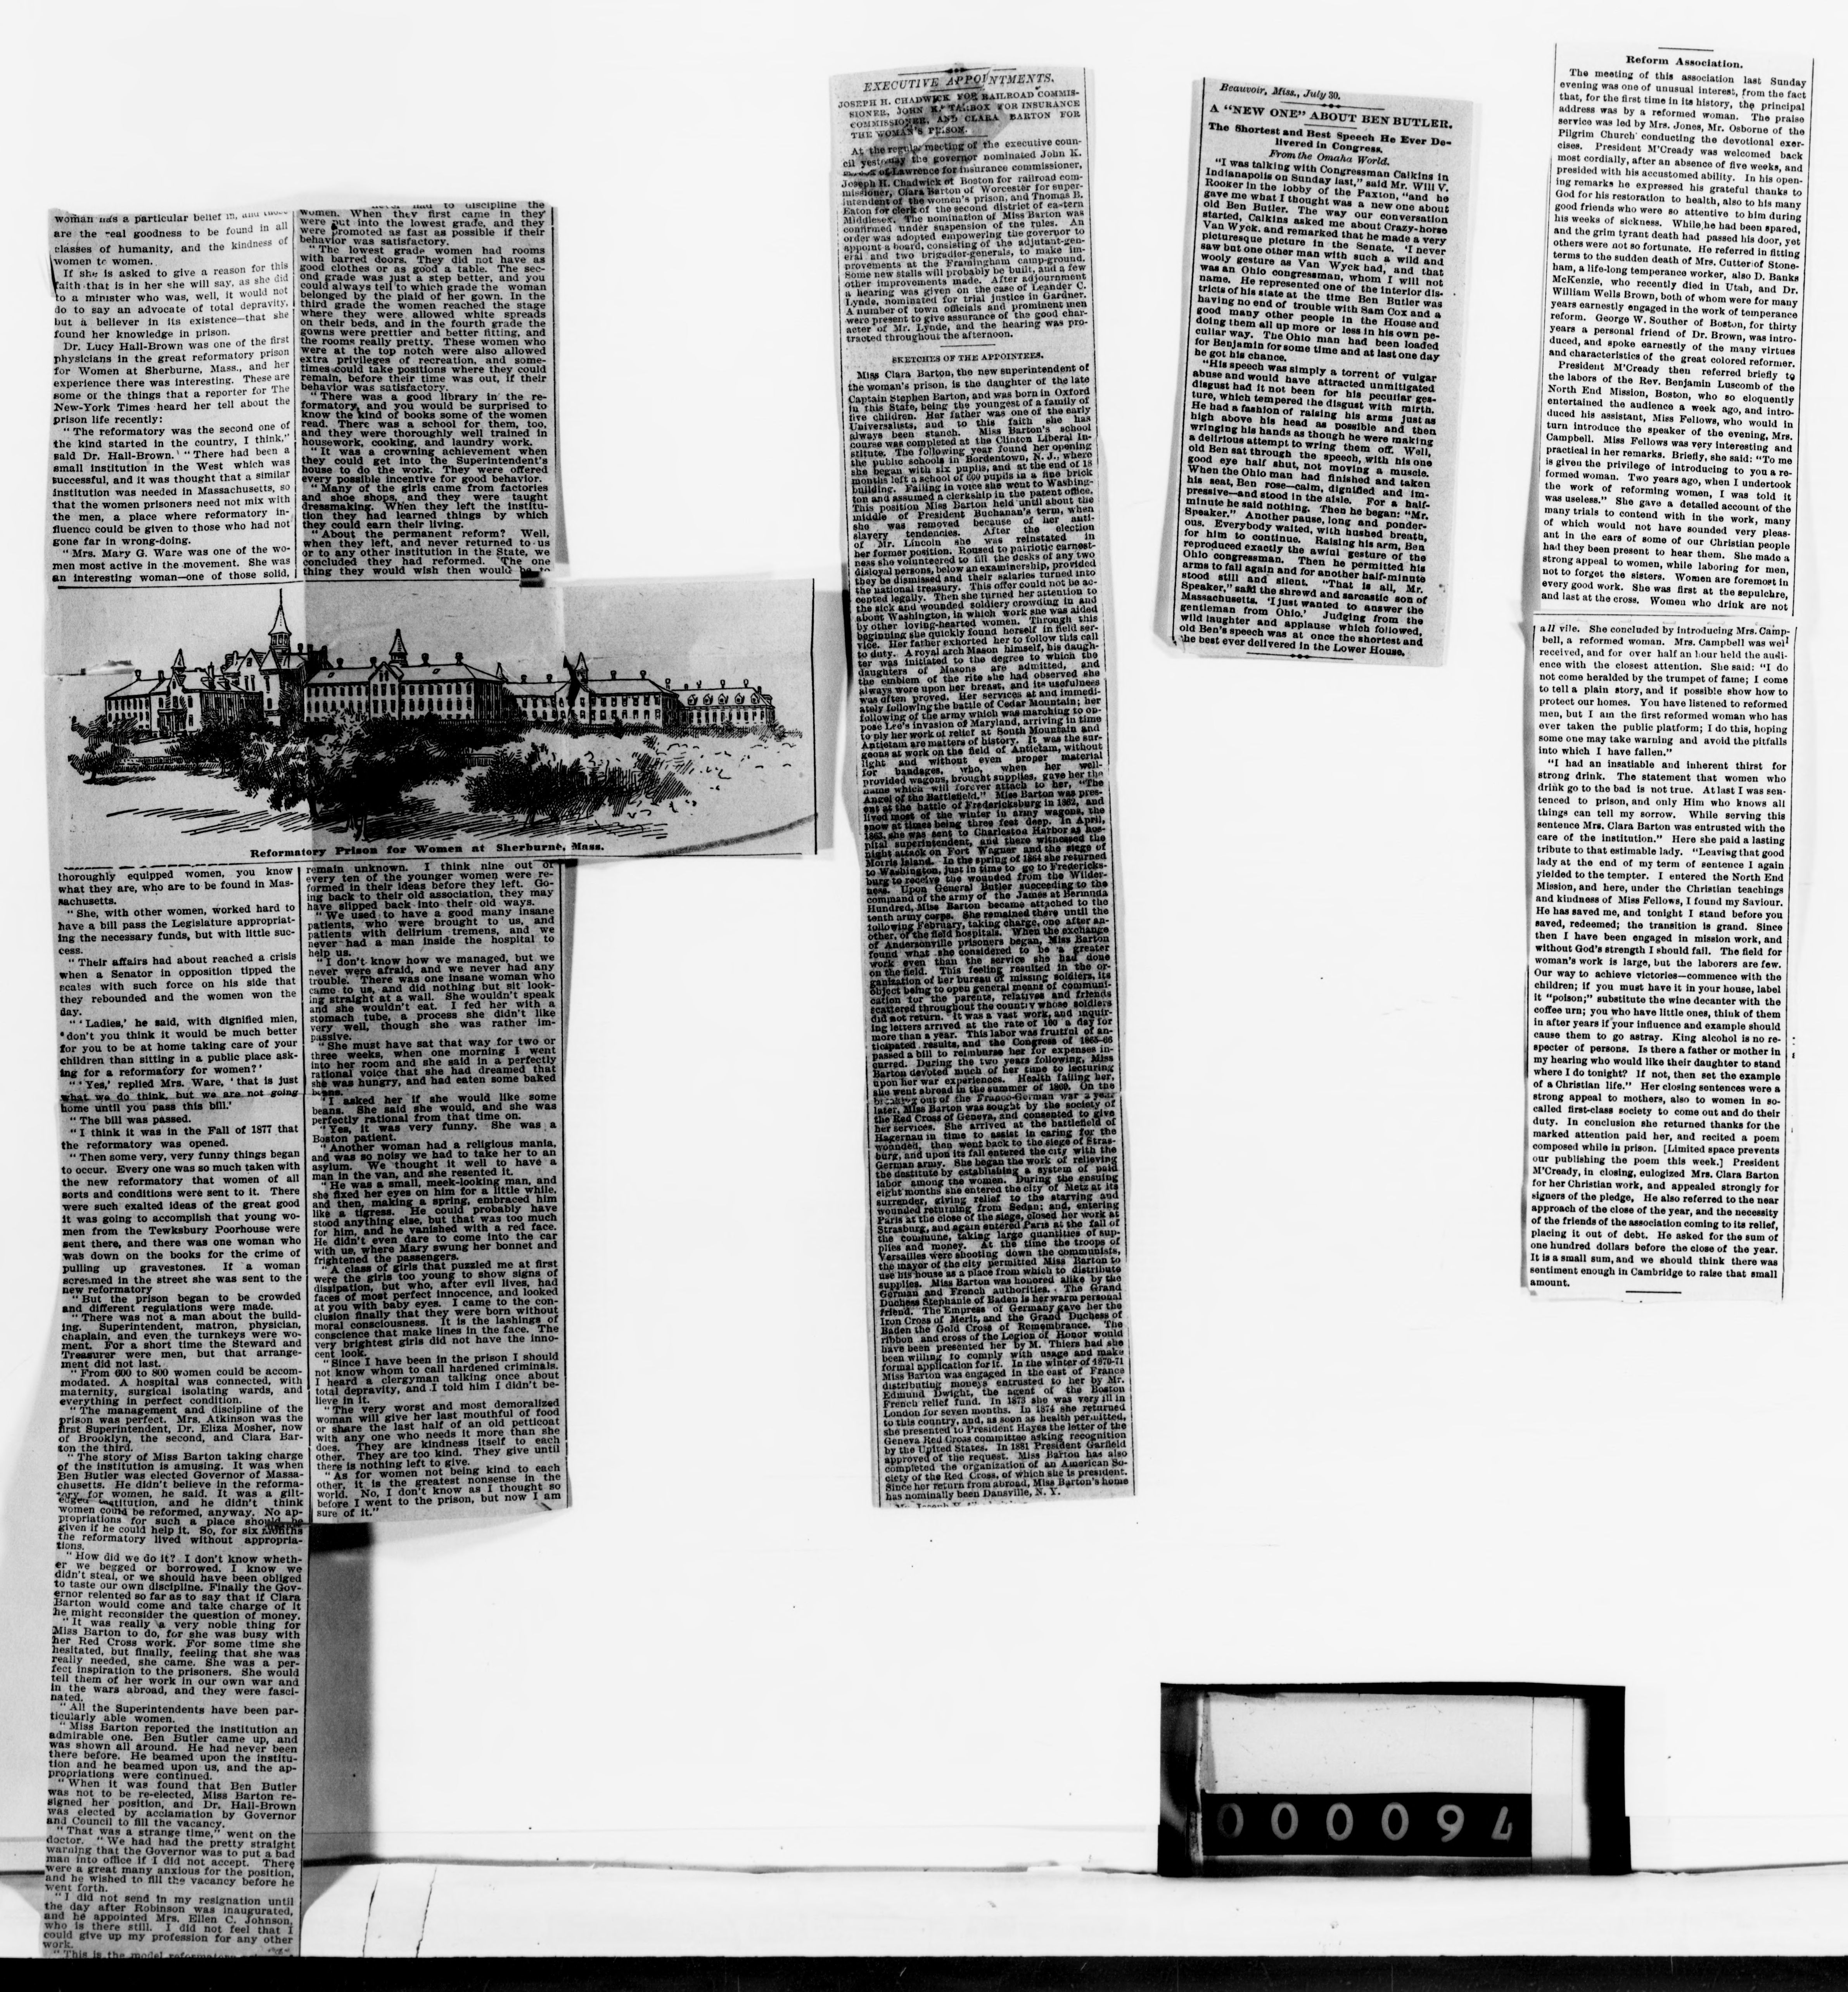 woman has a particular belief in, and those
are the real goodness to be found in all
classes of humanity, and the kindness of
women to women.
If she is asked to give a reason for this
faith that is in her she will say, as she did
to a minister who was, well, it would not
do to say an advocate of total depravity,
but a believer in its existence—that she
found her knowledge in prison.
Dr. Lucy Hall-Brown was one of the first
physicians in the great reformatory prison
for Women at Sherburne, Mass., and her
experience there was interesting. These are
some of the things that a reporter for The
New-York Times heard her tell about the
prison life recently:
"The reformatory was the second one of
the kind started in the country, I think,"
said Dr. Hall-Brown. "There had been a
small institution in the West which was
successful, and it was thought that a similar
institution was needed in Massachusetts, so
that the women prisoners need not mix with
the men, a place where reformatory in-
fluence could be given to those who had not
gone far in wrong-doing.
"Mrs. Mary G. Ware was one of the wo-
men most active in the movement. She was
an interesting woman—one of those solid,
thoroughly equipped women, you know
what they are, who are to be found in Mas-
sachusetts.
"She, with other women, worked hard to
have a bill pass the Legislature appropriat-
ing the necessary funds, but with little suc-
cess.
"Their affairs had about reached a crisis
when a Senator in opposition tipped the
scales with such force on his side that
they rebounded and the women won the
day.
"'Ladies,' he said, with dignified mien,
'don't you think it would be much better
for you to be at home taking care of your
children than sitting in a public place ask-
ing for a reformatory for women?'
"'Yes,' replied Mrs. Ware, 'that is just
what we do think, but we are not going
home until you pass this bill.'
"The bill was passed.
"I think it was in the Fall of 1877 that
the reformatory was opened.
"Then some very, very funny things began
to occur. Every one was so much taken with
the new reformatory that women of all
sorts and conditions were sent to it. There
were such exalted ideas of the great good
it was going to accomplish that young wo-
men from the Tewksbury Poorhouse were
sent there, and there was one woman who
was down on the books for the crime of
pulling up gravestones. If a woman
screamed in the street she was sent to the
new reformatory
"But the prison began to be crowded
and different regulations were made.
"There was not a man about the build-
ing. Superintendent, matron, physician,
chaplain, and even the turnkeys were wo-
ment. For a short time the Steward and
Treasurer were men, but that arrange-
ment did not last.
"From 600 to 800 women could be accom-
modated. A hospital was connected, with
maternity, surgical isolating wards, and
everything in perfect condition.
"The management and discipline of the
prison was perfect. Mrs. Atkinson was the
first Superintendent, Dr. Eliza Mosher, now
of Brooklyn, the second, and Clara Bar-
ton the third.
"The story of Miss Barton taking charge
of the institution is amusing. It was when
Ben Butler was elected Governor of Massa-
chusetts. He didn't believe in the reforma-
tory for women, he said. It was a gilt-
edged institution, and he didn't think
women could be reformed, anyway. No ap-
propriations for such a place should be
given if he could help it. So, for six months
the reformatory lived without appropria-
tions.
"How did we do it? I don't know wheth-
er we begged or borrowed. I know we
didn't steal, or we should have been obliged
to taste our own discipline. Finally the Gov-
ernor relented so far as to say that if Clara
Barton would come and take charge of it
he might reconsider the question of money.
"It was really a very noble thing for
Miss Barton to do, for she was busy with
her Red Cross work. For some time she
hesitated, but finally, feeling that she was
really needed, she came. She was a per-
fect inspiration to the prisoners. She would
tell them of her work in our own war and
in the wars abroad, and they were fasci-
nated.
"All the Superintendents have been par-
ticularly able women.
"Miss Barton reported the institution an
admirable one. Ben Butler came up, and
was shown all around. He had never been
there before. He beamed upon the institu-
tion and he beamed upon us, and the ap-
propriations were continued.
"When it was found that Ben Butler
was not to be re-elected, Miss Barton re-
signed her position, and Dr. Hall-Brown
was elected by acclamation by Governor
and Council to fill the vacancy.
"That was a strange time," went on the
doctor. "We had had the pretty straight
warning that the Governor was to put a bad
man into office if I did not accept. There
were a great many anxious for the position,
and he wished to fill the vacancy before he
went forth.
"I did not send in my resignation until
the day after Robinson was inaugurated,
and he appointed Mrs. Ellen C. Johnson,
who is there still. I did not feel that I
could give up my profession for any other
work.
"This is the model reformatory
had to discipline the
women. When they first came in they
were put into the lowest grade, and they
were promoted as fast as possible if their
behavior was satisfactory.
"The lowest grade women had rooms
with barred doors. They did not have as
good clothes or as good a table. The sec-
ond grade was just a step better, and you
could always tell to which grade the woman
belonged by the plaid of her gown. In the
third grade the women reached the stage
where they were allowed white spreads
on their beds, and in the fourth grade the
gowns were prettier and better fitting, and
the rooms really pretty. These women who
were at the top notch were also allowed
extra privileges of recreation, and some-
times could take positions where they could
remain, before their time was out, if their
behavior was satisfactory.
"There was a good library in the re-
formatory, and you would be surprised to
know the kind of books some of the women
read. There was a school for them, too,
and they were thoroughly well trained in
housework, cooking, and laundry work.
"It was a crowning achievement when
they could get into the Superintendent's
house to do the work. They were offered
every possible incentive for good behavior.
"Many of the girls came from factories
and shoe shops, and they were taught
dressmaking. When they left the institu-
tion they had learned things by which
they could earn their living.
"About the permanent reform? Well,
when they left, and never returned to us
or to any other institution in the State, we
concluded they had reformed. The one
thing they would wish then would be to
Reformatory Prison for Women at Sherburne, Mass.
remain unknown. I think nine out of
every ten of the younger women were re-
formed in their ideas before they left. Go-
ing back to their old association, they may
have slipped back into their old ways.
"We used to have a good many insane
patients, who were brought to us, and
patients with delirium tremens, and we
never had a man inside the hospital to
help us.
"I don't know how we managed, but we
never were afraid, and we never had any
trouble. There was one insane woman who
came to us, and did nothing but sit look-
ing straight at a wall. She wouldn't speak
and she wouldn't eat. I fed her with a
stomach tube, a process she didn't like
very well, though she was rather im-
passive.
"She must have sat that way for two or
three weeks, when one morning I went
into her room and she said in a perfectly
rational voice that she had dreamed that
she was hungry, and had eaten some baked
beans.
"I asked her if she would like some
beans. She said she would, and she was
perfectly rational from that time on.
"Yes, it was very funny. She was a
Boston patient.
"Another woman had a religious mania,
and was so noisy we had to take her to an
asylum. We thought it well to have a
man in the van, and she resented it.
"He was a small, meek-looking man, and
she fixed her eyes on him for a little while,
and then, making a spring, embraced him
like a tigress. He could probably have
stood anything else, but that was too much
for him, and he vanished with a red face.
He didn't even dare to come into the car
with us, where Mary swung her bonnet and
frightened the passengers.
"A class of girls that puzzled me at first
were the girls too young to show signs of
dissipation, but who, after evil lives, had
faces of most perfect innocence, and looked
at you with baby eyes. I came to the con-
clusion finally that they were born without
moral consciousness. It is the lashings of
conscience that make lines in the face. The
very brightest girls did not have the inno-
cent look.
"Since I have been in the prison I should
not know whom to call hardened criminals.
I heard a clergyman talking once about
total depravity, and I told him I didn't be-
lieve in it.
"The very worst and most demoralized
woman will give her last mouthful of food
or share the last half of an old petticoat
with any one who needs it more than she
does. They are kindness itself to each
other. They are too kind. They give until
there is nothing left to give.
"As for women not being kind to each
other, it is the greatest nonsense in the
world. No, I don't know as I thought so
before I went to the prison, but now I am
sure of it."
EXECUTIVE APPOINTMENTS.
JOSEPH H. CHADWICK FOR RAILROAD COMMIS-
SIONER, JOHN K. TARBOX FOR INSURANCE
COMMISSIONER, AND CLARA BARTON FOR
THE WOMAN'S PRISON.
At the regular meeting of the executive coun-
cil yesterday the governor nominated John K.
Tarbox of Lawrence for insurance commissioner,
Joseph H. Chadwick of Boston for railroad com-
missioner, Clara Barton of Worcester for super-
intendent of the women's prison, and Thomas B.
Eaton for clerk of the second district of eastern
Middlesex. The nomination of Miss Barton was
confirmed under suspension of the rules. An
order was adopted empowering the governor to
appoint a board, consisting of the adjutant-gen-
eral and two brigadier-generals, to make im-
provements at the Framingham camp-ground.
Some new stalls will probably be built, and a few
other improvements made. After adjournment
a hearing was given on the case of Leander C.
Lynde, nominated for trial justice in Gardner.
A number of town officials and prominent men
were present to give assurance of the good char-
acter of Mr. Lynde, and the hearing was pro-
tracted throughout the afternoon.
SKETCHES OF THE APPOINTEES.
Miss Clara Barton, the new superintendent of
the woman's prison, is the daughter of the late
Captain Stephen Barton, and was born in Oxford
in this State, being the youngest of a family of
five children. Her father was one of the early
Universalists, and to this faith she has
always been stanch. Miss Barton's school
course was completed at the Clinton Liberal In-
stitute. The following year found her opening
the public schools in Bordentown, N. J., where
she began with six pupils, and at the end of 18
months left a school of 600 pupils in a fine brick
building. Failing in voice she went to Washing-
ton and assumed a clerkship in the patent office.
This position Miss Barton held until about the
middle of President Buchanan's term, when
she was removed because of her anti-
slavery tendencies. After the election
of Mr. Lincoln she was reinstated in
her former position. Roused to patriotic earnest-
ness she volunteered to fill the desks of any two
disloyal persons, below an examinership, provided
they be dismissed and their salaries turned into
the national treasury. This offer could not be ac-
cepted legally. Then she turned her attention to
the sick and wounded soldiery crowding in and
about Washington, in which work she was aided
by other loving-hearted women. Through this
beginning she quickly found herself in field ser-
vice. Her father exhorted her to follow this call
to duty. A royal arch Mason himself, his daugh-
ter was initiated to the degree to which the
daughters of Masons are admitted, and
the emblem of the rite she had observed she
always wore upon her breast, and its usefulness
was often proved. Her services at and immedi-
ately following the battle of Cedar Mountain; her
following of the army which was marching to op-
pose Lee's invasion of Maryland, arriving in time
to ply her work of relief at South Mountain and
Antietam are matters of history. It was the sur-
geons at work on the field of Antietam, without
light and without even proper material
for bandages, who, when her well-
provided wagons, brought supplies, gave her the
name which will forever attach to her, "The
Angel of the Battlefield." Miss Barton was pres-
ent at the battle of Fredericksburg in 1862, and
lived most of the winter in army wagons, the
snow at times being three feet deep. In April,
1863, she was sent to Charleston Harbor as hos-
pital superintendent, and there witnessed the
night attack on Fort Wagner and the siege of
Morris Island. In the spring of 1864 she returned
to Washington, just in time to go to Fredericks-
burg to receive the wounded from the Wilder-
ness. Upon General Butler succeeding to the
command of the army of the James at Bermuda
Hundred, Miss Barton became attached to the
tenth army corps. She remained there until the
following February, taking charge, one after an-
other, of the field hospitals. When the exchange
of Andersonville prisoners began, Miss Barton
found what she considered to be a greater
work even than the service she had done
on the field. This feeling resulted in the or-
ganization of her bureau of missing soldiers, its
object being to open general means of communi-
cation for the parents, relatives and friends
scattered throughout the country whose soldiers
did not return. It was a vast work, and inquir-
ing letters arrived at the rate of 100 a day for
more than a year. This labor was fruitful of an-
ticipated results, and the Congress of 1865-66
passed a bill to reimburse her for expenses in-
curred. During the two years following, Miss
Barton devoted much of her time to lecturing
upon her war experiences. Health failing her,
she went abroad in the summer of 1869. On the
breaking out of the Franco-German war a year
later, Miss Barton was sought by the society of
the Red Cross of Geneva, and consented to give
her services. She arrived at the battlefield of
Hagernan in time to assist in caring for the
wounded, then went back to the siege of Stras-
burg, and upon its fall entered the city with the
German army. She began the work of relieving
the destitute by establishing a system of paid
labor among the women. During the ensuing
eight months she entered the city of Metz at its
surrender, giving relief to the starving and
wounded returning from Sedan; and, entering
Paris at the close of the siege, closed her work at
Strasburg, and again entered Paris at the fall of
the commune, taking large quantities of sup-
plies and money. At the time the troops of
Versailles were shooting down the communists,
the mayor of the city permitted Miss Barton to
use his house as a place from which to distribute
supplies. Miss Barton was honored alike by the
German and French authorities. The Grand
Duchess Stephanie of Baden is her warm personal
friend. The Empress of Germany gave her the
Iron Cross of Merit, and the Grand Duchess of
Baden the Gold Cross of Remembrance. The
ribbon and cross of the Legion of Honor would
have been presented her by M. Thiers had she
been willing to comply with usage and make
formal application for it. In the winter of 1870-71
Miss Barton was engaged in the east of France
distributing moneys entrusted to her by Mr.
Edmund Dwight, the agent of the Boston
French relief fund. In 1873 she was very ill in
London for seven months. In 1874 she returned
to this country, and, as soon as health permitted,
she presented to President Hayes the letter of the
Geneva Red Cross committee asking recognition
by the United States. In 1881 President Garfield
approved of the request. Miss Barton has also
completed the organization of an American So-
ciety of the Red Cross, of which she is president.
Since her return from abroad, Miss Barton's home
has nominally been Dansville, N. Y.
Beauvoir, Miss., July 30.
A "NEW ONE" ABOUT BEN BUTLER.
The Shortest and Best Speech He Ever De-
livered in Congress.
From the Omaha World.
"I was talking with Congressman Calkins in
Indianapolis on Sunday last," said Mr. Will V.
Rooker in the lobby of the Paxton, "and he
gave me what I thought was a new one about
old Ben Butler. The way our conversation
started, Calkins asked me about Crazy-horse
Van Wyck, and remarked that he made a very
picturesque picture in the Senate. 'I never
saw but one other man with such a wild and
wooly gesture as Van Wyck had, and that
was an Ohio congressman, whom I will not
name. He represented one of the interior dis-
tricts of his state at the time Ben Butler was
having no end of trouble with Sam Cox and a
good many other people in the House and
doing them all up more or less in his own pe-
culiar way. The Ohio man had been loaded
for Benjamin for some time and at last one day
he got his chance.
"His speech was simply a torrent of vulgar
abuse and would have attracted unmitigated
disgust had it not been for his peculiar ges-
ture, which tempered the disgust with mirth.
He had a fashion of raising his arms just as
high above his head as possible and then
wringing his hands as though he were making
a delirious attempt to wring them off. Well,
old Ben sat through the speech, with his one
good eye half shut, not moving a muscle.
When the Ohio man had finished and taken
his seat, Ben rose—calm, dignified and im-
pressive—and stood in the aisle. For a half-
minute he said nothing. Then he began: "Mr.
Speaker." Another pause, long and ponder-
ous. Everybody waited, with hushed breath,
for him to continue. Raising his arm, Ben
reproduced exactly the awful gesture of the
Ohio congressman. Then he permitted his
arms to fall again and for another half-minute
stood still and silent. "That is all, Mr.
Speaker," said the shrewd and sarcastic son of
Massachusetts. 'I just wanted to answer the
gentleman from Ohio.' Judging from the
wild laughter and applause which followed,
old Ben's speech was at once the shortest and
the best ever delivered in the Lower House.
Reform Association.
The meeting of this association last Sunday
evening was one of unusual interest, from the fact
that, for the first time in its history, the principal
address was by a reformed woman. The praise
service was led by Mrs. Jones, Mr. Osborne of the
Pilgrim Church conducting the devotional exer-
cises. President M'Cready was welcomed back
most cordially, after an absence of five weeks, and
presided with his accustomed ability. In his open-
ing remarks he expressed his grateful thanks to
God for his restoration to health, also to his many
good friends who were so attentive to him during
his weeks of sickness. While he had been spared,
and the grim tyrant death had passed his door, yet
others were not so fortunate. He referred in fitting
terms to the sudden death of Mrs. Cutter of Stone-
ham, a life-long temperance worker, also D. Banks
McKenzie, who recently died in Utah, and Dr.
William Wells Brown, both of whom were for many
years earnestly engaged in the work of temperance
reform. George W. Souther of Boston, for thirty
years a personal friend of Dr. Brown, was intro-
duced, and spoke earnestly of the many virtues
and characteristics of the great colored reformer.
President M'Cready then referred briefly to
the labors of the Rev. Benjamin Luscomb of the
North End Mission, Boston, who so eloquently
entertained the audience a week ago, and intro-
duced his assistant, Miss Fellows, who would in
turn introduce the speaker of the evening, Mrs.
Campbell. Miss Fellows was very interesting and
practical in her remarks. Briefly, she said: "To me
is given the privilege of introducing to you a re-
formed woman. Two years ago, when I undertook
the work of reforming women, I was told it
was useless." She gave a detailed account of the
many trials to contend with in the work, many
of which would not have sounded very pleas-
ant in the ears of some of our Christian people
had they been present to hear them. She made a
strong appeal to women, while laboring for men,
not to forget the sisters. Women are foremost in
every good work. She was first at the sepulchre,
and last at the cross. Women who drink are not
all vile. She concluded by introducing Mrs. Camp-
bell, a reformed woman. Mrs. Campbell was wel
received, and for over half an hour held the audi-
ence with the closest attention. She said: "I do
not come heralded by the trumpet of fame; I come
to tell a plain story, and if possible show how to
protect our homes. You have listened to reformed
men, but I am the first reformed woman who has
ever taken the public platform; I do this, hoping
some one may take warning and avoid the pitfalls
into which I have fallen."
"I had an insatiable and inherent thirst for
strong drink. The statement that women who
drink go to the bad is not true. At last I was sen-
tenced to prison, and only Him who knows all
things can tell my sorrow. While serving this
sentence Mrs. Clara Barton was entrusted with the
care of the institution." Here she paid a lasting
tribute to that estimable lady. "Leaving that good
lady at the end of my term of sentence I again
yielded to the tempter. I entered the North End
Mission, and here, under the Christian teachings
and kindness of Miss Fellows, I found my Saviour.
He has saved me, and tonight I stand before you
saved, redeemed; the transition is grand. Since
then I have been engaged in mission work, and
without God's strength I should fail. The field for
woman's work is large, but the laborers are few.
Our way to achieve victories—commence with the
children; if you must have it in your house, label
it "poison;" substitute the wine decanter with the
coffee urn; you who have little ones, think of them
in after years if your influence and example should
cause them to go astray. King alcohol is no re-
specter of persons. Is there a father or mother in
my hearing who would like their daughter to stand
where I do tonight? If not, then set the example
of a Christian life." Her closing sentences were a
strong appeal to mothers, also to women in so-
called first-class society to come out and do their
duty. In conclusion she returned thanks for the
marked attention paid her, and recited a poem
composed while in prison. [Limited space prevents
our publishing the poem this week.] President
M'Cready, in closing, eulogized Mrs. Clara Barton
for her Christian work, and appealed strongly for
signers of the pledge, He also referred to the near
approach of the close of the year, and the necessity
of the friends of the association coming to its relief,
placing it out of debt. He asked for the sum of
one hundred dollars before the close of the year.
It is a small sum, and we should think there was
sentiment enough in Cambridge to raise that small
amount.
000094